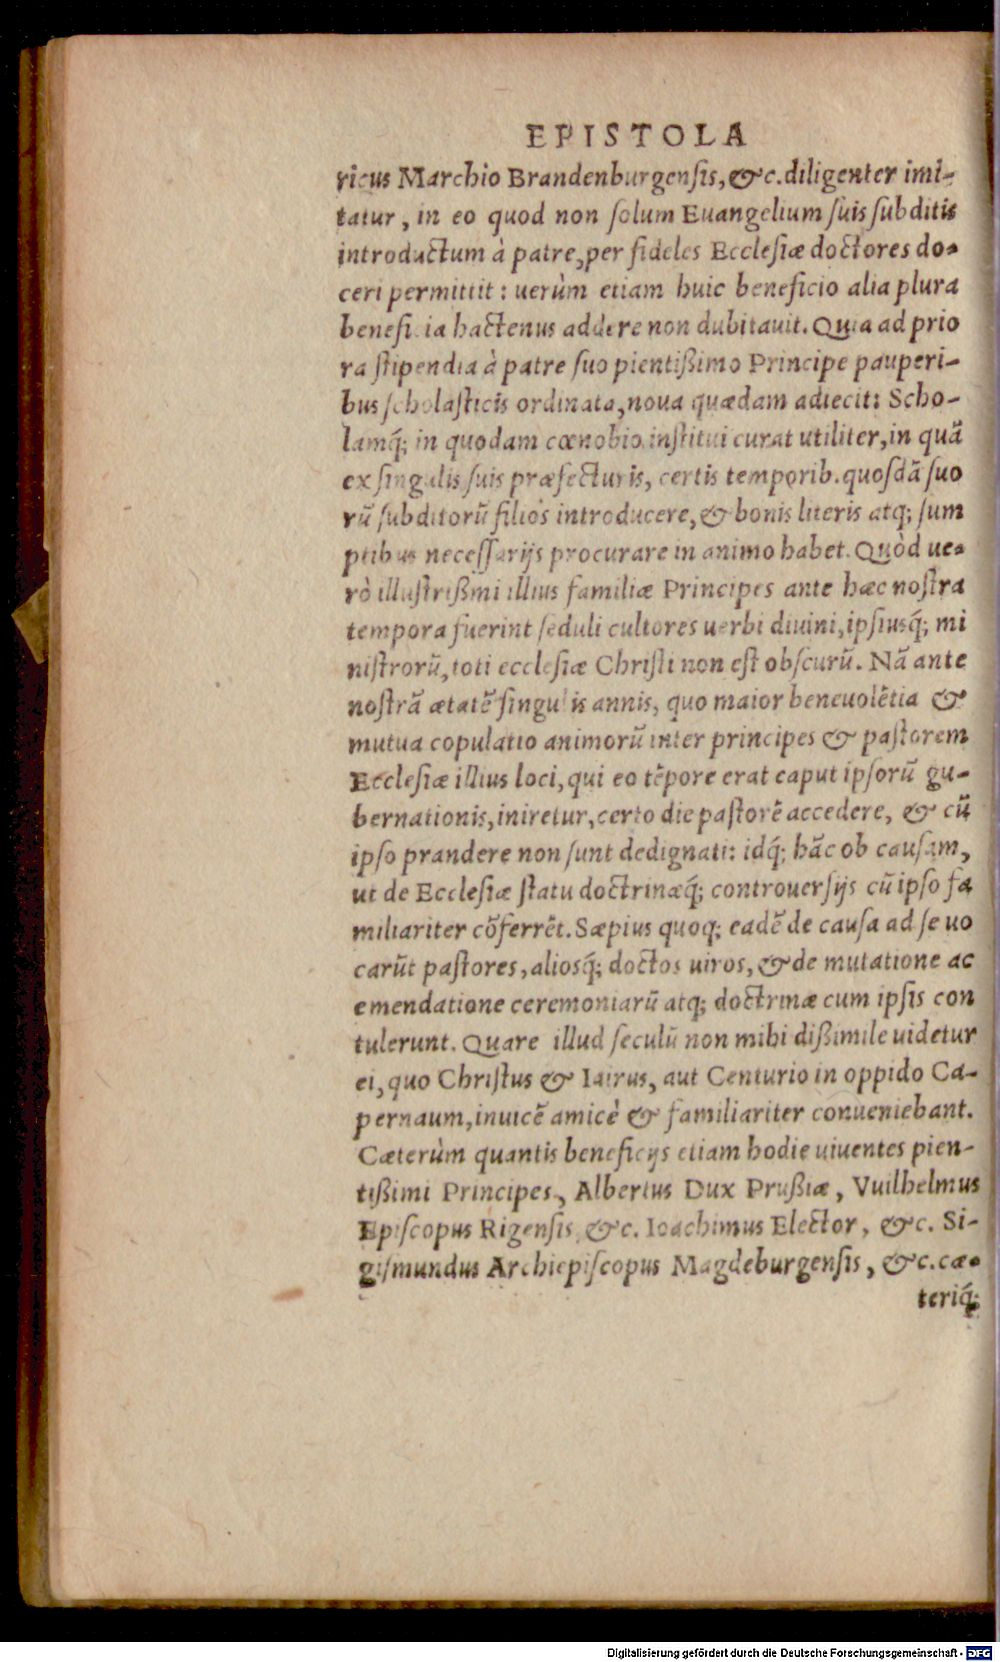 EPISTOLA
ricus Marchio Brandenburgenſis, &c. diligenter imi-
tatur, in eo quod non ſolum Euangelium ſuis ſubditis
introductum à patre, per fideles Eccleſiæ doctores do-
ceri permittit: uerùm etiam huic beneficio alia plura
beneficia hactenus addere non dubitauit. Quia ad prio
ra ſtipendia à patre ſuo pientißimo Principe pauperi-
bus ſcholaſticis ordinata, noua quædam adiecit: Scho-
lamq́; in quodam cœnobio inſtitui curat utiliter, in quā
ex ſingulis ſuis præfecturis, certis temporib. quoſdā ſuo
rū ſubditorū filios introducere, & bonis literis atq; ſum
ptibus neceſſarijs procurare in animo habet. Quòd ue-
rò illuſtrißimi illius familiæ Principes ante hæc noſtra
tempora fuerint ſeduli cultores uerbi diuini, ipſiusq́; mi
niſtrorū, toti eccleſiæ Chriſti non eſt obſcurū. Nā ante
noſtrā ætatē ſingulis annis, quo maior beneuolētia &
mutua copulatio animorū inter principes & paſtorem
Eccleſiæ illius loci, qui eo tēpore erat caput ipſorū gu-
bernationis, iniretur, certo die paſtorē accedere, & cū
ipſo prandere non ſunt dedignati: idq́; hāc ob cauſam,
ut de Eccleſiæ ſtatu doctrinæq́; controuerſijs cū ipſo fa
miliariter cōferrēt. Sæpius quoq; eadē de cauſa ad ſe uo
carūt paſtores, aliosq́; doctos uiros, & de mutatione ac
emendatione ceremoniarū atq; doctrinæ cum ipſis con
tulerunt. Quare illud ſeculū non mihi dißimile uidetur
ei, quo Chriſtus & Iairus, aut Centurio in oppido Ca-
pernaum, inuicē amicè & familiariter conueniebant.
Cæterùm quantis beneficijs etiam hodie uiuentes pien-
tißimi Principes, Albertus Dux Prußiæ, Vuilhelmus
Epiſcopus Rigenſis &c. Ioachimus Elector, &c. Si-
giſmundus Archiepiſcopus Magdeburgenſis, &c. cæ-
teriq́;
Digitalisierung gefördert durch die Deutsche Forschungsgemeinschaft - DFG